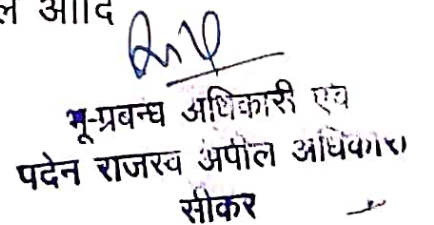 आदि
भू-प्रबन्ध अधिकारी एवं
पदेन राजस्व अपील अधिकारी
सीकर